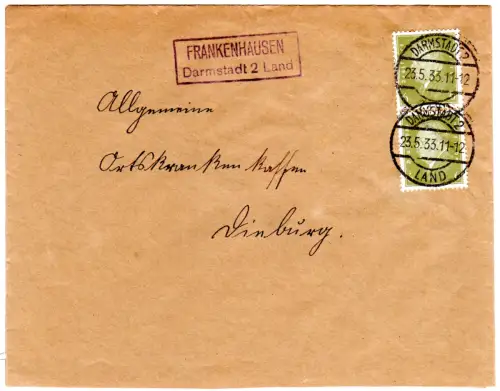 FRANKENHAUSEN
Darmstadt 2 Land
DARMSTADT 2
23.5.33.11-12
DARMSTADT 2
23.5.33.11-12
LAND
Allgemeine
Ortskrankenkassen
Dieburg.